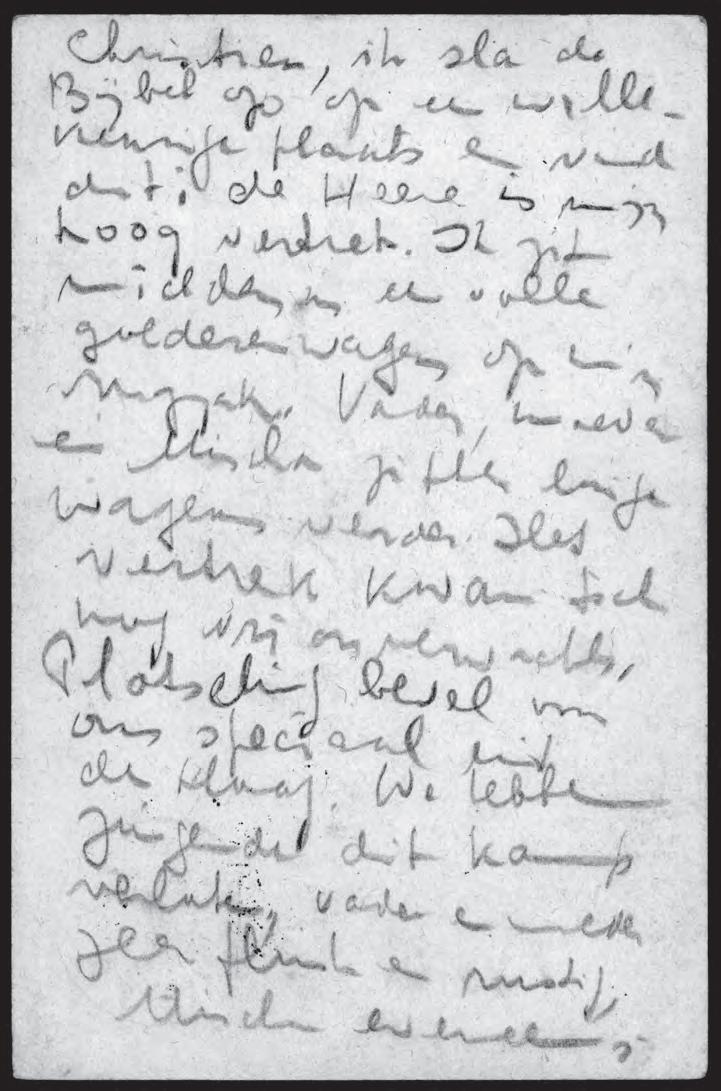 Christien, ik sla de
Bijbel op op een wille-
keurige plaats en vind
dit: de Heere is mijn
hoog vertrek. Ik zit
midden in een volle
goederenwagen op m'n
rugzak. Vader, moeder
en Mischa zitten enige
wagens verder. Het
vertrek kwam toch
nog vrij onverwachts.
Plotseling bevel voor
ons speciaal uit
den Haag. We hebben
zingende dit kamp
verlaten, vader en moeder
zeer flink en rustig.
Mischa eveneens